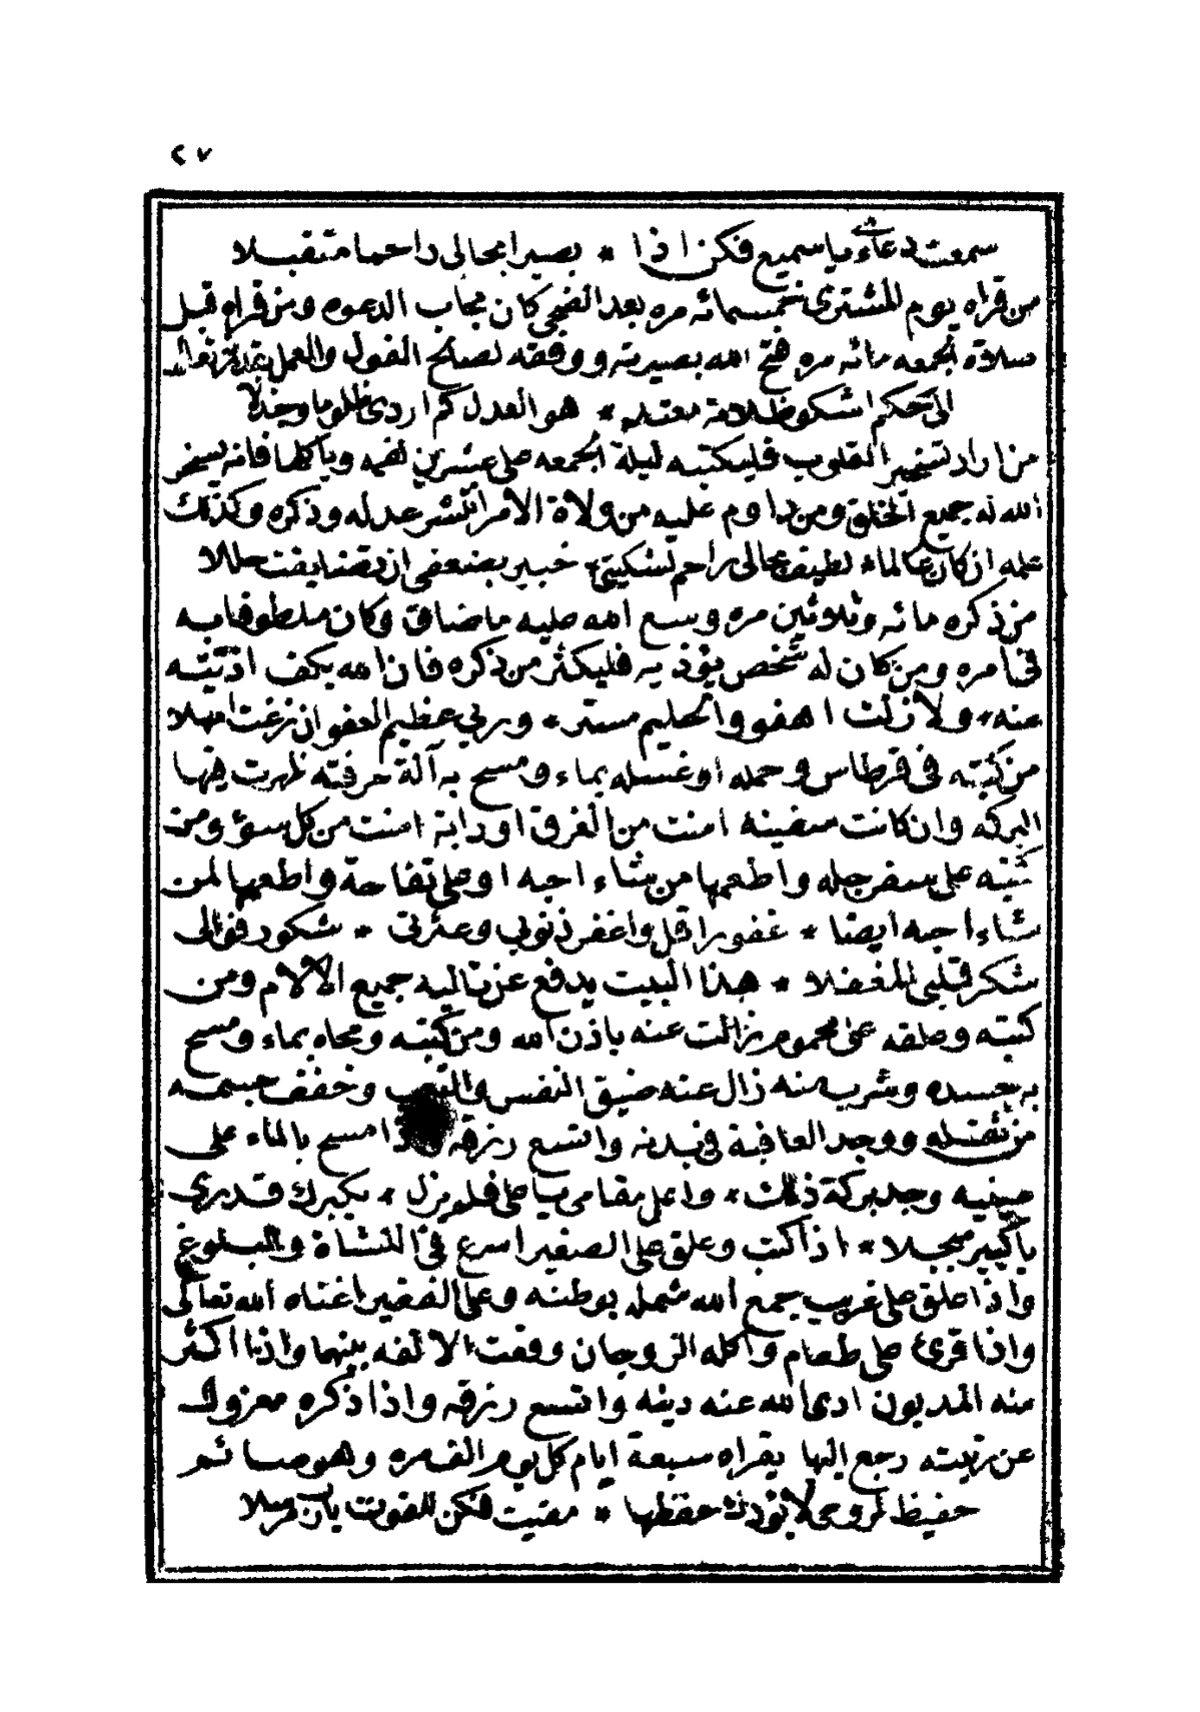 ٢٧
سمعت دعائي يا سميع فكن اذا * بصيرا بحالى راحما متقبلا
من قراه يوم المشترى خمسمائه مره بعد الضحى كان مجاب الدعوه ومن قراه قبل
صلاة الجمعه مائه مره فتح الله بصيرته ووفقه لصالح القول والعمل
الى حكم اشكو ظلامة معتد * هو العدل كم اردى ظلوما وجندلا
من اراد تسخير القلوب فليكتبه ليلة الجمعه على عشرين لقمه وياكلها فانه يسخر
الله له جميع الخلق ومن داوم عليه من ولاة الامر انتشر عدله وذكره وكذلك
عمله ان كان عالما * لطيف بحالى راحم لشكيتى * خبير بضعفى ان
من ذكره مائه وثلاثين مره وسع الله عليه ما ضاق وكان ملطوفا به
فى امره ومن كان له شخص يؤذيه فليكثر من ذكره فان الله يكف اذيته
عنه * ولا زلت اهفو والحليم مستر * وربي عظيم العفو ان زغت امهلا
من كتبه فى قرطاس وحمله او غسله بماء ومسح به آلة حرفته ظهرت فيها
البركه وان كانت سفينه امنت من الغرق او دابة امنت من كل سوء ومن
على سفرجله واطعمها من شاء احبه او على تفاحة واطعمها لمن
شاء احبه ايضا * غفورا قل واغفر ذنوبي وعثرتى * شكور فوالى
شكر قلبى المغفلا * هذا البيت يدفع عن تاليه جميع الالام ومن
كتبه وعلقه على محموم زالت عنه باذن الله ومن كتبه ومحاه بماء ومسح
به جسده وشرب منه زال عنه ضيق النفس والتعب وخفف جسمه
من ثقله ووجد العافية فى بدنه واتسع رزقه امسح بالماء على
عينيه وجد بركة ذلك * واعل مقامى يا على فلم يزل * بكبرك قدرى
يا كبير مبجلا * اذا كتب وعلق على الصغير اسرع فى النشاة والبلوغ
واذا علق على غريب جمع الله شمله بوطنه وعلى الفقير اغناه الله تعالى
واذا قرئ على طعام واكله الزوجان وقعت الالفه بينهما واذا اكثر
منه المديون ادى الله عنه دينه واتسع رزقه واذا ذكره معزول
عن رتبته رجع اليها يقراه سبعة ايام كل يوم الف مره وهو صائم
حفيظ لروحى لا يؤدك حفظها * مقيت فكن للقوت يا رب مرسلا